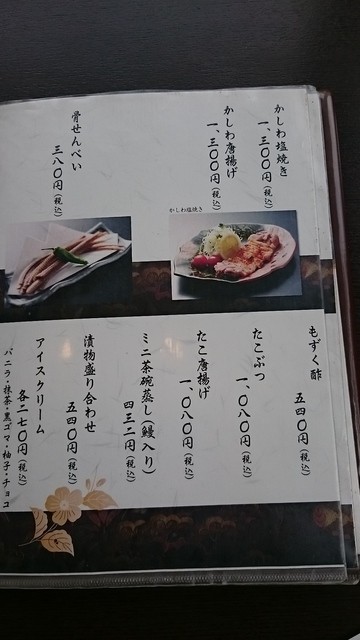 かしわ塩焼き
一、三〇〇円（税込）
かしわ唐揚げ
一、三〇〇円（税込）
骨せんべい
三八〇円（税込）
かしわ塩焼き
もずく酢
五四〇円（税込）
たこぶつ
一、〇八〇円（税込）
たこ唐揚げ
一、〇八〇円（税込）
ミニ茶碗蒸し（鰻入り）
四三二円（税込）
漬物盛り合わせ
五四〇円（税込）
アイスクリーム
各二七〇円（税込）
バニラ・抹茶・黒ゴマ・柚子・チョコ